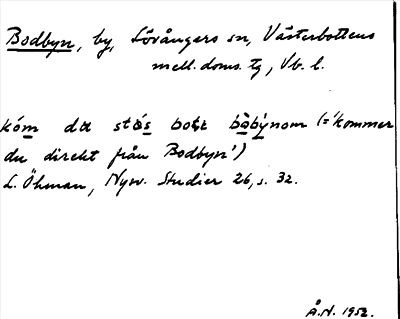 Bodbyn, by, Lövångers sn, Västerbottens
mell. doms. tg, Vb. l.
kóm du stǿs bott bòbýnom (= 'kommer
du direkt från Bodbyn')
L. Öhman, Nysv. Studier 26, s. 32.
Å.N. 1952.